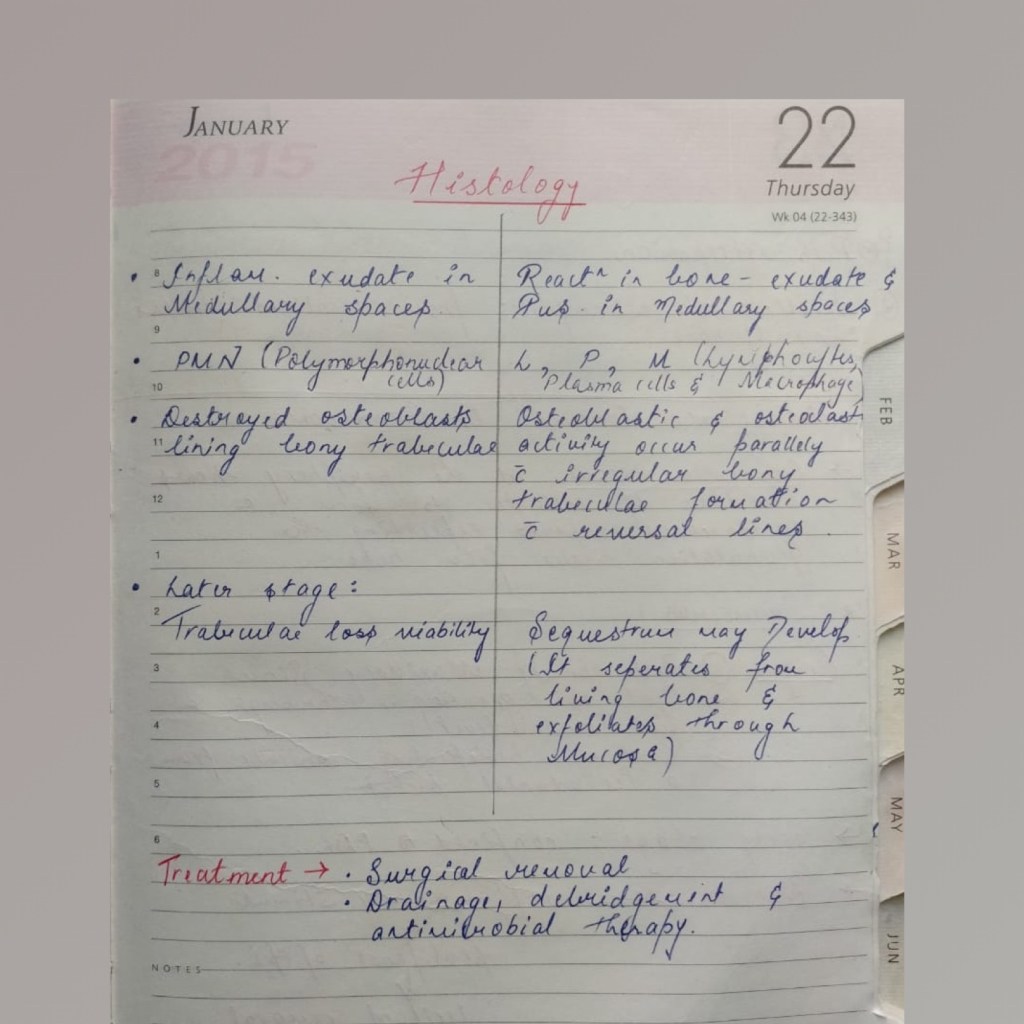 JANUARY
2015
22
Thursday
Wk 04 (22-343)
Histology
8
• Inflam. exudate in
Medullary spaces.
9
• PMN (Polymorphonuclear
cells)
10
• Destroyed osteoblasts
11
lining bony trabeculae
12
1
• Later stage:
2
Trabeculae loss viability
3
4
5
6
Reactⁿ in bone - exudate &
Pus. in Medullary spaces
L, P, M (Lymphocytes,
Plasma cells & Macrophage)
Osteoblastic & osteoclast
activity occur parallely
c̄ irregular bony
trabeculae formation
c̄ reversal lines.
Sequestrum may Develop.
(It seperates from
living bone &
exfoliates through
Mucosa)
Treatment → • Surgical removal
• Drainage, debridgement &
antimicrobial therapy.
NOTES
FEB
MAR
APR
MAY
JUN